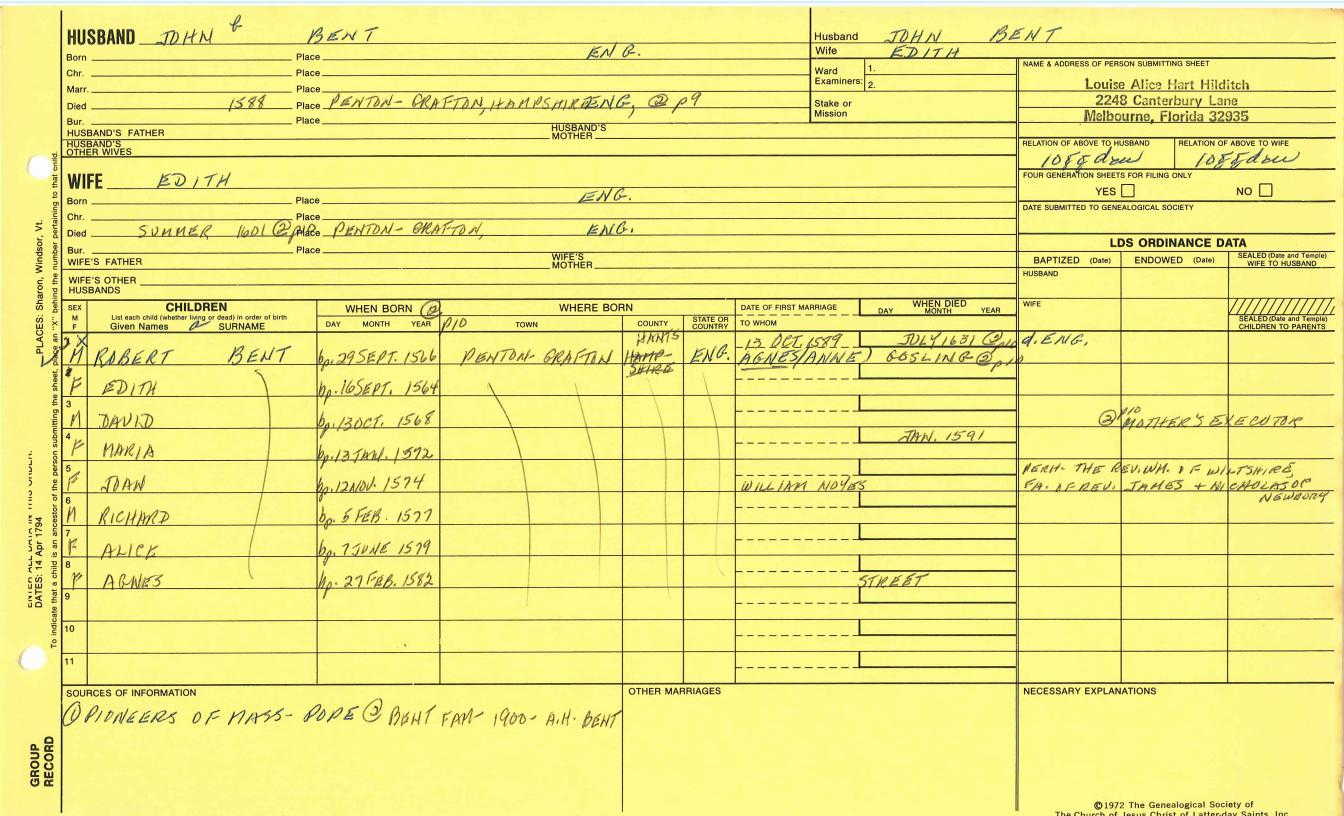 HUSBAND JOHN b BENT
Born Place ENG.
Chr. Place
Marr. Place
Died 1588 Place PENTON-GRAFTON, HAMPSHIRE ENG, ② p9
Bur. Place
HUSBAND'S FATHER HUSBAND'S MOTHER
HUSBAND'S OTHER WIVES
Husband JOHN BENT
Wife EDITH
Ward Examiners: 1.
2.
Stake or Mission
NAME & ADDRESS OF PERSON SUBMITTING SHEET
Louise Alice Hart Hilditch
2248 Canterbury Lane
Melbourne, Florida 32935
RELATION OF ABOVE TO HUSBAND RELATION OF ABOVE TO WIFE
FOUR GENERATION SHEETS FOR FILING ONLY
YES NO
DATE SUBMITTED TO GENEALOGICAL SOCIETY
WIFE EDITH
Born Place ENG.
Chr. Place
Died SUMMER 1601 ② p10 Place PENTON-GRAFTON, ENG.
Bur. Place
WIFE'S FATHER WIFE'S MOTHER
WIFE'S OTHER HUSBANDS
LDS ORDINANCE DATA
BAPTIZED (Date) ENDOWED (Date) SEALED (Date and Temple) WIFE TO HUSBAND
HUSBAND
WIFE
SEALED (Date and Temple) CHILDREN TO PARENTS
SEX M F
CHILDREN
List each child (whether living or dead) in order of birth
Given Names a SURNAME
WHEN BORN ② p10
DAY MONTH YEAR
WHERE BORN
TOWN COUNTY STATE OR COUNTRY
DATE OF FIRST MARRIAGE
TO WHOM
WHEN DIED
DAY MONTH YEAR
X
M ROBERT BENT bp. 29 SEPT. 1566 PENTON-GRAFTON HANTS HAMPSHIRE ENG. 13 OCT. 1589 JULY 1631 ② p10 d. ENG.
AGNES (ANNE) GOSLING ② p10
F EDITH bp. 16 SEPT. 1564
3
M DAVID bp. 13 OCT. 1568 ② p10 MOTHER'S EXECUTOR
4
F MARIA bp. 13 JAN. 1572 JAN. 1591
5
F JOAN bp. 12 NOV. 1574 WILLIAM NOYES PERH. THE REV. WM. OF WILTSHIRE,
FA. OF REV. JAMES + NICHOLAS OF NEWBURY
6
M RICHARD bp. 5 FEB. 1577
7
F ALICE bp. 7 JUNE 1579
8
F AGNES bp. 27 FEB. 1582 STREET
9
10
11
SOURCES OF INFORMATION
① PIONEERS OF MASS- POPE ② BENT FAM- 1900- A.H. BENT
OTHER MARRIAGES
NECESSARY EXPLANATIONS
©1972 The Genealogical Society of
The Church of Jesus Christ of Latter-day Saints, Inc.
PLACES: Sharon, Windsor, Vt.
ENTER ALL DATA IN THIS ORDER:
DATES: 14 Apr 1794
To indicate that a child is an ancestor of the person submitting the sheet, place an "X" behind the number pertaining to that child.
GROUP RECORD